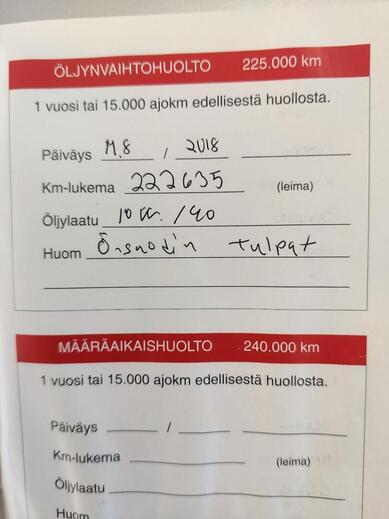 ÖLJYNVAIHTOHUOLTO 225.000 km
1 vuosi tai 15.000 ajokm edellisestä huollosta.
Päiväys 11.8 / 2018
Km-lukema 222635 (leima)
Öljylaatu 10 W. / 40
Huom Ö-suodin tulpat
MÄÄRÄAIKAISHUOLTO 240.000 km
1 vuosi tai 15.000 ajokm edellisestä huollosta.
Päiväys /
Km-lukema (leima)
Öljylaatu
Huom